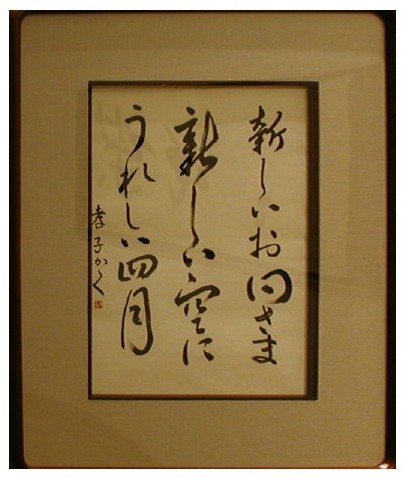 新しいお日さま
新しい空に
うれしい四月
孝子かく